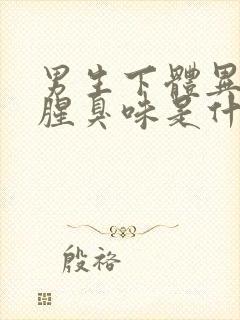 男生下體異
腥臭味是什
殷袼